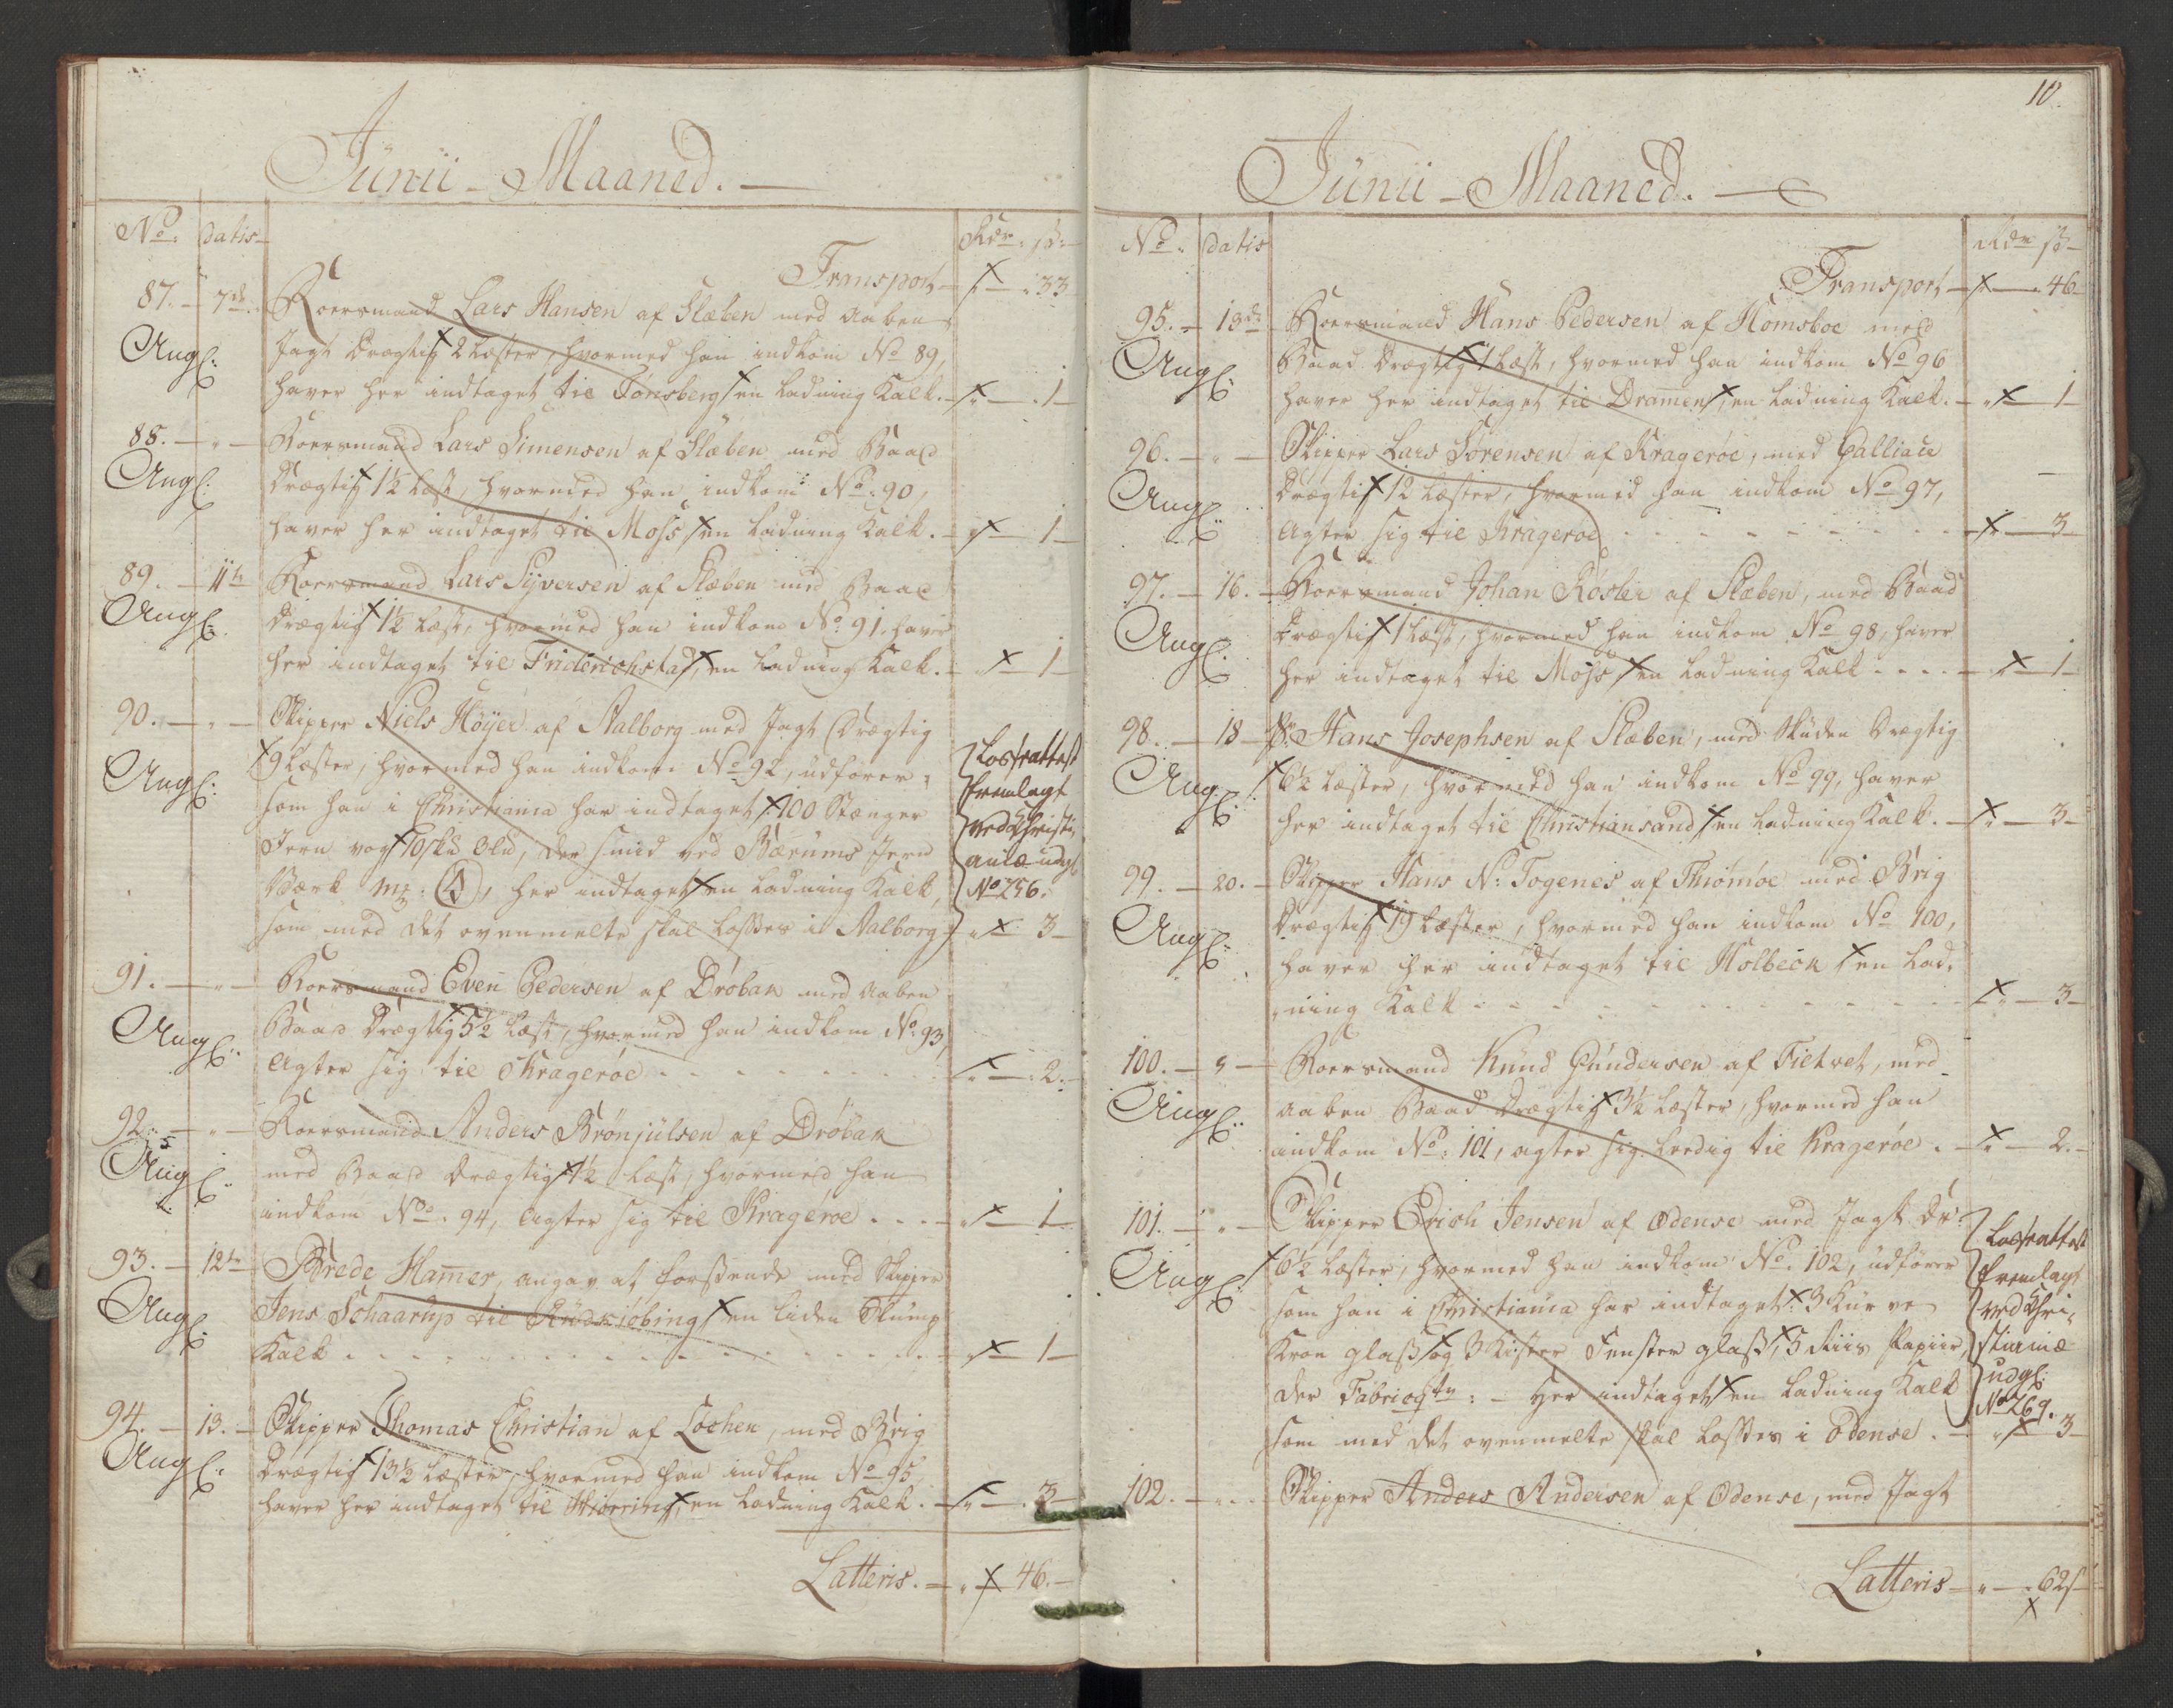 Junii Maaned.
No. datis Rdr. s:
Transport 33
87. 7de Roersmand Lars Hansen af Slæben med aaben
Angl: Jagt Drægtig 2 Læster, hvormed han indkom No 89,
haver her indtaget til Tønsberg en Ladning Kalk. 1
88. " Roersmand Lars Simensen af Slæben med Baad
Angl: Drægtig 1½ Læst, hvormed han indkom No. 90,
haver her indtaget til Moss en Ladning Kalk. 1
89. 11te Roersmand Lars Syversen af Slæben med Baad
Angl: Drægtig 1½ Læst, hvormed han indkom No. 91. haver
her indtaget til Friderichstad, en Ladning Kalk. 1
90. " Skipper Niels Høyer af Aalborg med Jagt Drægtig
Angl: 9 Læster, hvormed han indkom No 92, udfører
som han i Christiania har indtaget 100 Stænger
Jern vog 10 sk , der smid ved Bærums Jern
Værk mz: , her indtaget en Ladning Kalk,
som med det ovenmelte skal losses i Aalborg 3
Losseattest
fremlagt
ved Christi,
aniæ udgl
No 256.
91. " Roersmand Even Pedersen af Drøbak med aaben
Angl: Baad Drægtig 5½ Læst, hvormed han indkom No. 93,
agter sig til Kragerøe 2.
92. " Roersmand Anders Brønjulsen af Drøbak
Angl: med Baad Drægtig 1½ Læst, hvormed han
indkom No. 94, agter sig til Kragerøe 1
93. 12te Brede Hamer, angav at forsende med Skipper
Angl: Jens Schaarup til Rudkiøbing en liden Slump
Kalk 1
94. 13. Skipper Thomas Christian af Løcken, med Brig
Angl: Drægtig 13½ Læster, hvormed han indkom No 95,
haver her indtaget til Hiørring, en Ladning Kalk. 3
Latteris. 46.
10.
Junii Maaned.
No. datis Rdr s
Transport 46
95. 13de Roersmand Hans Pedersen af Homsboe med
Angl: Baad Drægtig 1 Læst, hvormed han indkom No 96
haver her indtaget til Dramen, en Ladning Kalk. 1
96. " Skipper Lars Sørensen af Kragerøe, med Galliace
Angl: Drægtig 12 Læster, hvormed han indkom No 97,
agter sig til Kragerøe 3
97. 16. Roersmand Johan Røsler af Slæben, med Baad
Angl: Drægtig 1 Læst, hvormed han indkom No 98, haver
her indtaget til Moss en Ladning Kalk 1
98. 18 Sk: Hans Josephsen af Slæben, med Skuden Drægtig
Angl: 6½ Læster, hvormed han indkom No 99, haver
her indtaget til Christiansand en Ladning Kalk. 3
99. 20. Skipper Hans N: Togenes af Thrømøe med Brig
Angl: Drægtig 19 Læster, hvormed han indkom No 100,
haver her indtaget til Holbeck en Lad,
ning Kalk 3
100. " Roersmand Knud Gundersen af Tietvet, med
Angl: aaben Baad Drægtig 3½ Læster, hvormed han
indkom No: 101, agter sig leedig til Kragerøe. 2.
101. " Skipper Erich Jensen af Odense med Jagt Dr:
Angl: 6½ Læster, hvormed han indkom No. 102, udfører
som han i Christiania har indtaget 3 Kurve
Kron glass og 3 Kister Fenster glass, 3 Riis Papiir,
der Fabriqtr: Her indtaget en Ladning Kalk
som med det ovenmelte skal losses i Odense. 3
Losseattest
fremlagt
ved Chri-
stianiæ
udgl:
No 269.
102. " Skipper Anders Andersen af Odense, med Jagt
Latteris 62